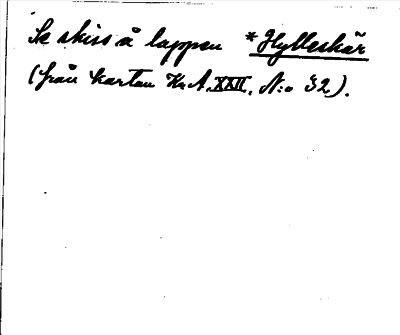 Se skiss å lappen *Hylleskär
(från kartan Kr.A. XXII, N:o 32).